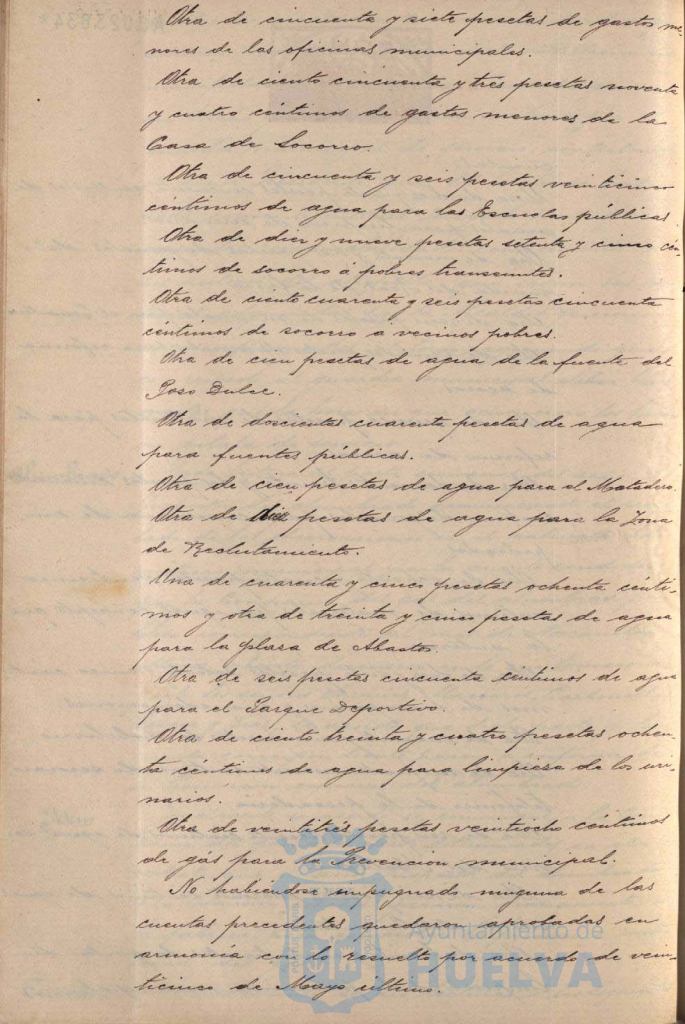 Otra de cincuenta y siete pesetas de gastos me-
nores de las oficinas municipales.
Otra de ciento cincuenta y tres pesetas noventa
y cuatro céntimos de gastos menores de la
Casa de Socorro.
Otra de cincuenta y seis pesetas veinticinco
céntimos de agua para las Escuelas públicas
Otra de diez y nueve pesetas setenta y cinco cén-
timos de socorro á pobres transeuntes.
Otra de ciento cuarenta y seis pesetas cincuenta
céntimos de socorro á vecinos pobres.
Otra de cien pesetas de agua de la fuente del
Poso Dulce.
Otra de doscientas cuarenta pesetas de agua
para fuentes públicas.
Otra de cien pesetas de agua para el Matadero.
Otra de diez pesetas de agua para la Zona
de Reclutamiento.
Una de cuarenta y cinco pesetas ochenta cénti-
mos y otra de treinta y cinco pesetas de agua
para la plaza de Abastos.
Otra de seis pesetas cincuenta céntimos de agua
para el Parque Deportivo.
Otra de ciento treinta y cuatro pesetas ochen-
ta céntimos de agua para limpieza de los uri-
narios.
Otra de veintitrés pesetas veintiocho céntimos
de gás para la Prevencion municipal.
No habiéndose impugnado ninguna de las
cuentas precedentes quedaron aprobadas en
armonía con lo resuelto por acuerdo de vein-
ticinco de Mayo último.
Ayuntamiento de
HUELVA